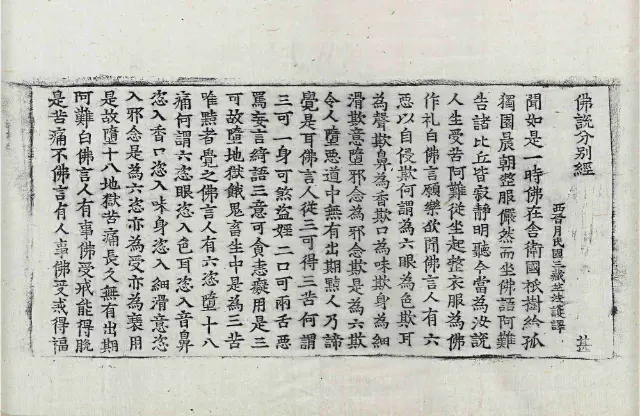 佛說分別經
西晉月氏國三藏竺法護譯
聞如是一時佛在舍衛國祇樹給孤
獨園晨朝整服儼然而坐佛語阿難
告諸比丘皆寂靜明聽今當為汝說
人生受苦阿難從坐起整衣服為佛
作礼白佛言願樂欲聞佛言人有六
惡以自侵欺何謂為六眼為色欺耳
為聲欺鼻為香欺口為味欺身為細
滑欺意墮邪念為邪念欺是為六欺
令人墮惡道中無有出期黠人乃諦
覺是耳佛言人從三可得三苦何謂
三可一身可煞盜婬二口可兩舌惡
罵妄言綺語三意可貪恚癡用是三
可故墮地獄餓鬼畜生中是為三苦
唯黠者覺之佛言人有六恣墮十八
痛何謂六恣眼恣入色耳恣入音鼻
恣入香口恣入味身恣入細滑意恣
入邪念是為六恣亦為受亦為裹用
是故墮十八地獄苦痛長久無有出期
阿難白佛言人有事佛受戒能得脫
是苦痛不佛言有人事佛受戒得福